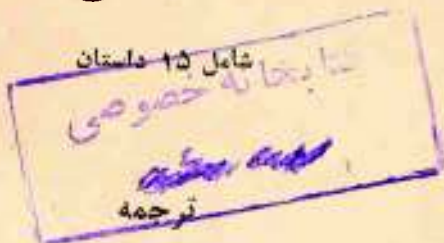 شامل ۱۵ داستان
کتابخانه خصوصی
ترجمه